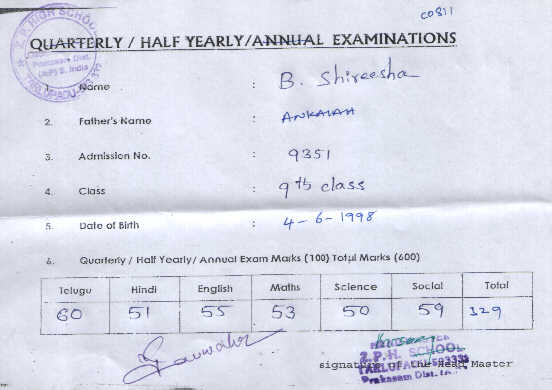 CO811
Z.P. HIGH SCHOOL
Prakasam Dist.
(AP) S. India
QUARTERLY / HALF YEARLY/ANNUAL EXAMINATIONS
1. Name : B. Shireesha
2. Father's Name : ANKAIAH
3. Admission No. : 9351
4. Class : 9th class
5. Date of Birth : 4-6-1998
6. Quarterly / Half Yearly/ Annual Exam Marks (100) Total Marks (600)
Telugu Hindi English Maths Science Social Total
60 51 55 53 50 59 329
Z.P.H. SCHOOL
signature of the Head Master
Prakasam Dist.